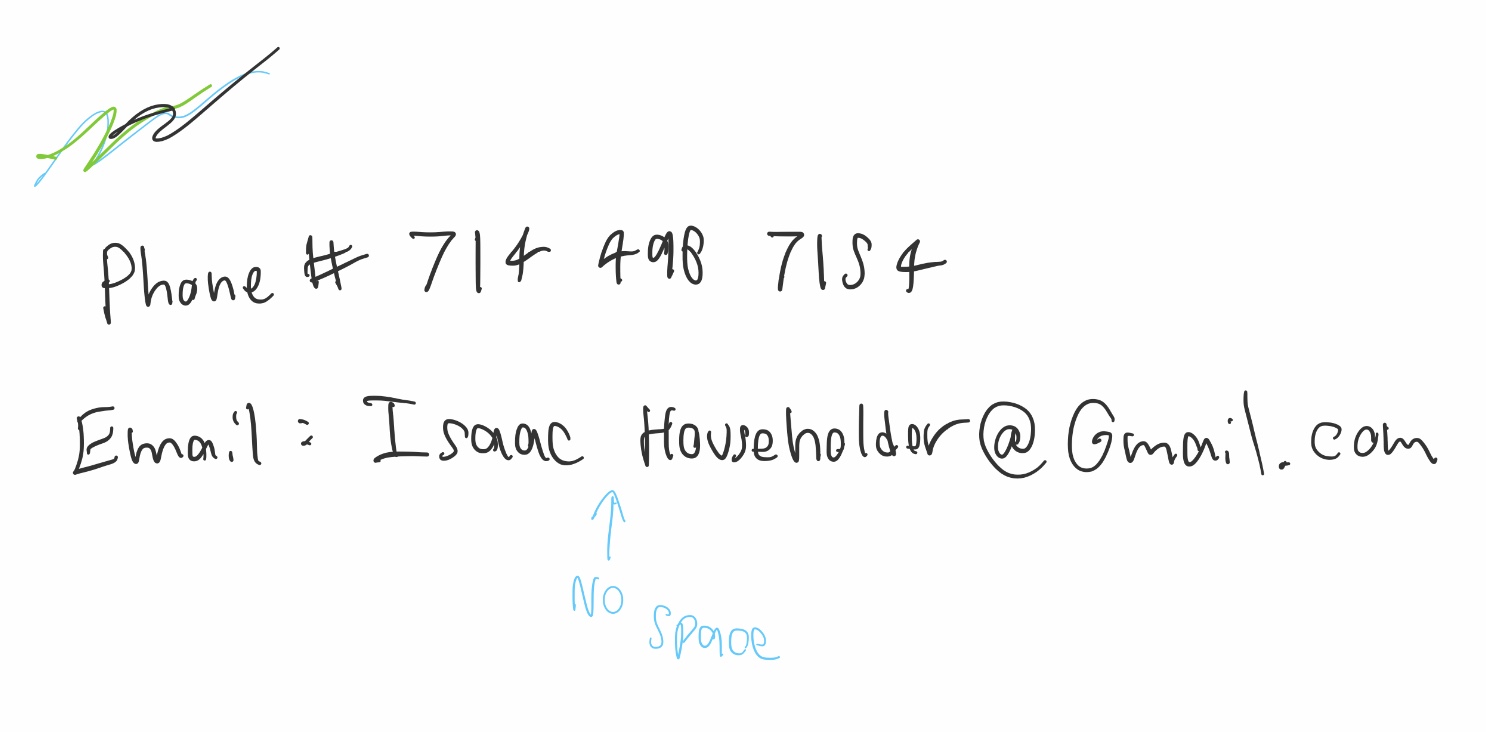 Phone # 714 498 7154
Email: Isaac Householder@Gmail.com
NO
space